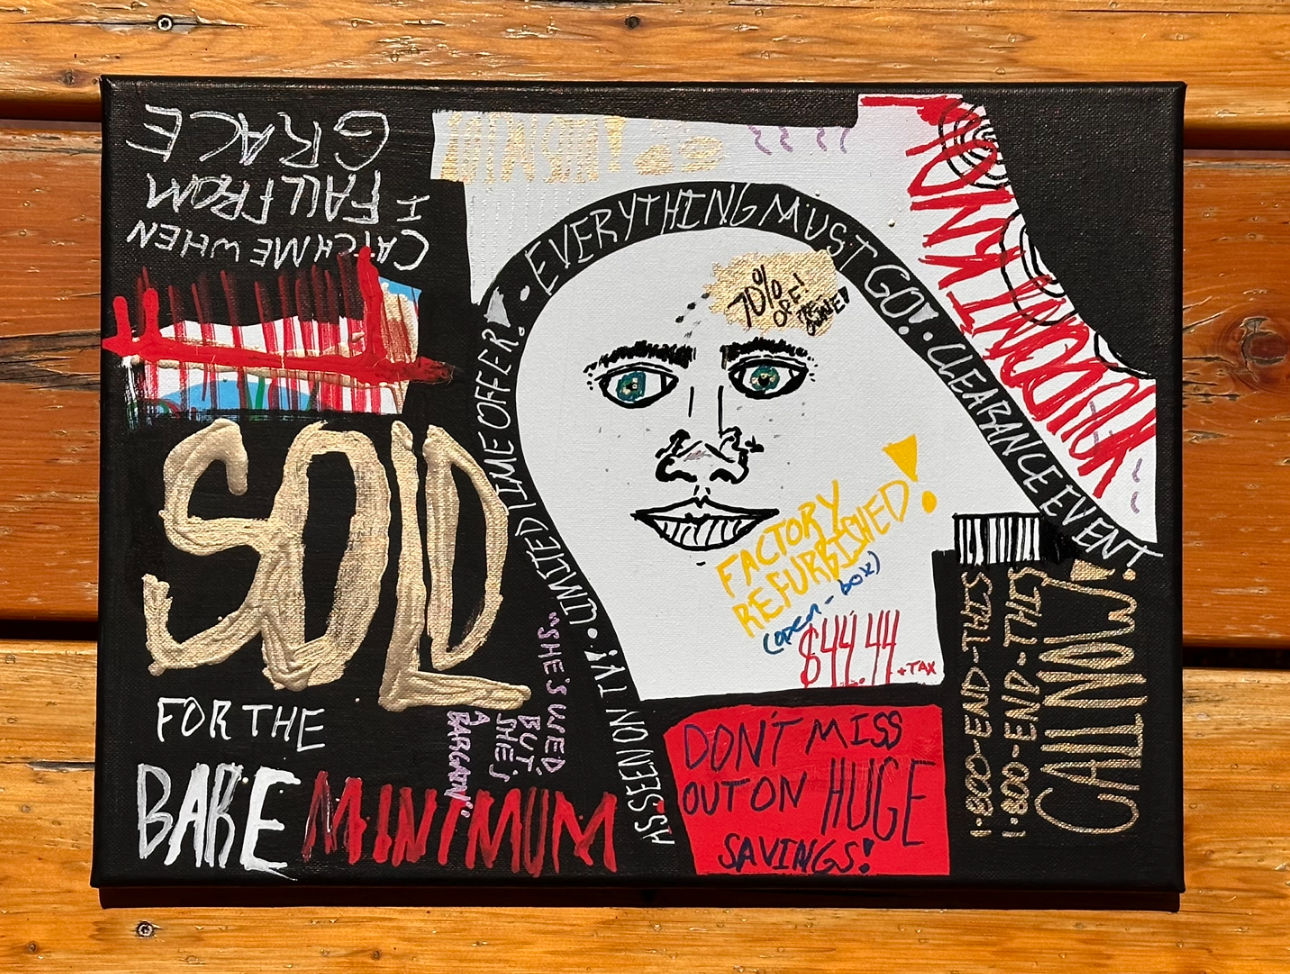 CATCH ME WHEN
I FALL FROM
GRACE
AS SEEN ON TV! • LIMITED TIME OFFER! • EVERYTHING MUST GO! • CLEARANCE EVENT!
70%
OFF!
SOLD
FOR THE
BARE MINIMUM
"SHE'S USED,
BUT
SHE'S
A
BARGAIN"
FACTORY
REFURBISHED!
(open-box)
$44.44
+TAX
DON'T MISS
OUT ON HUGE
SAVINGS!
1-800-END-THIS
1-800-END-THIS
CALL NOW!